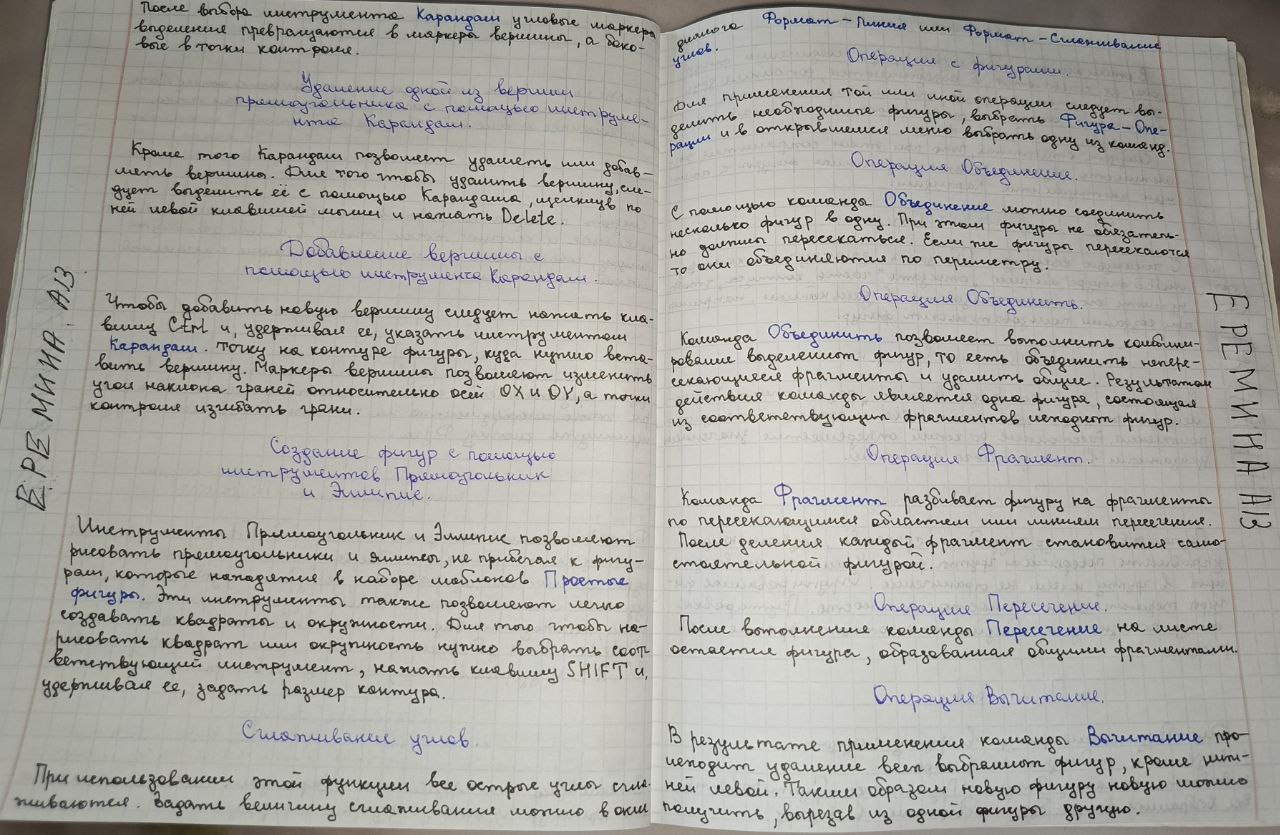 После выбора инструмента Карандаш угловые маркеры
выделения превращаются в маркеры вершины, а боко-
вые в точки контроля.
Удаление одной из вершин
прямоугольника с помощью инструме-
нта Карандаш.
Кроме того Карандаш позволяет удалять или добав-
лять вершины. Для того чтобы удалить вершину, сле-
дует выделить её с помощью Карандаша, щелкнув по
ней левой клавишей мыши и нажать Delete.
Добавление вершины с
помощью инструмента Карандаш.
Чтобы добавить новую вершину следует нажать кла-
вишу Ctrl и, удерживая ее, указать инструментом
Карандаш. точку на контуре фигуры, куда нужно вста-
вить вершину. Маркеры вершины позволяют изменить
угол наклона граней относительно осей OX и OY, а точки
контроля изгибать грани.
Создание фигур с помощью
инструментов Прямоугольник
и Эллипс.
Инструменты Прямоугольник и Эллипс позволяют
рисовать прямоугольники и эллипсы, не прибегая к фигу-
рам, которые находятся в наборе шаблонов Простые
фигуры. Эти инструменты также позволяют легко
создавать квадраты и окружности. Для того чтобы на-
рисовать квадрат или окружность нужно выбрать соот-
ветствующий инструмент, нажать клавишу SHIFT и,
удерживая ее, задать размер контура.
Сглаживание углов.
При использовании этой функции все острые углы сгла-
живаются. Задать величину сглаживания можно в окне
ЕРЕМИНА А13
диалога Формат – Линия или Формат – Сглаживание
углов.
Операции с фигурами.
Для применения той или иной операции следует вы-
делить необходимые фигуры, выбрать Фигура – Опе-
рации и в открывшемся меню выбрать одну из команд.
Операция Объединение.
С помощью команды Объединение можно соединить
несколько фигур в одну. При этом фигуры не обязатель-
но должны пересекаться. Если же фигуры пересекаются
то они объединяются по периметру.
Операция Объединить.
Команда Объединить позволяет выполнить комбини-
рование выделенных фигур, то есть объединить непере-
секающиеся фрагменты и удалить общие. Результатом
действия команды является одна фигура, состоящая
из соответствующих фрагментов исходных фигур.
Операция Фрагмент.
Команда Фрагмент разбивает фигуру на фрагменты
по пересекающимся областям или линиям пересечения.
После деления каждый фрагмент становится само-
стоятельной фигурой.
Операция Пересечение.
После выполнения команды Пересечение на листе
остается фигура, образованная общими фрагментами.
Операция Вычитание.
В результате применения команды Вычитание про-
исходит удаление всех выбранных фигур, кроме ниж-
ней левой. Таким образом новую фигуру новую можно
получить, вырезав из одной фигуры другую.
ЕРЕМИНА А13